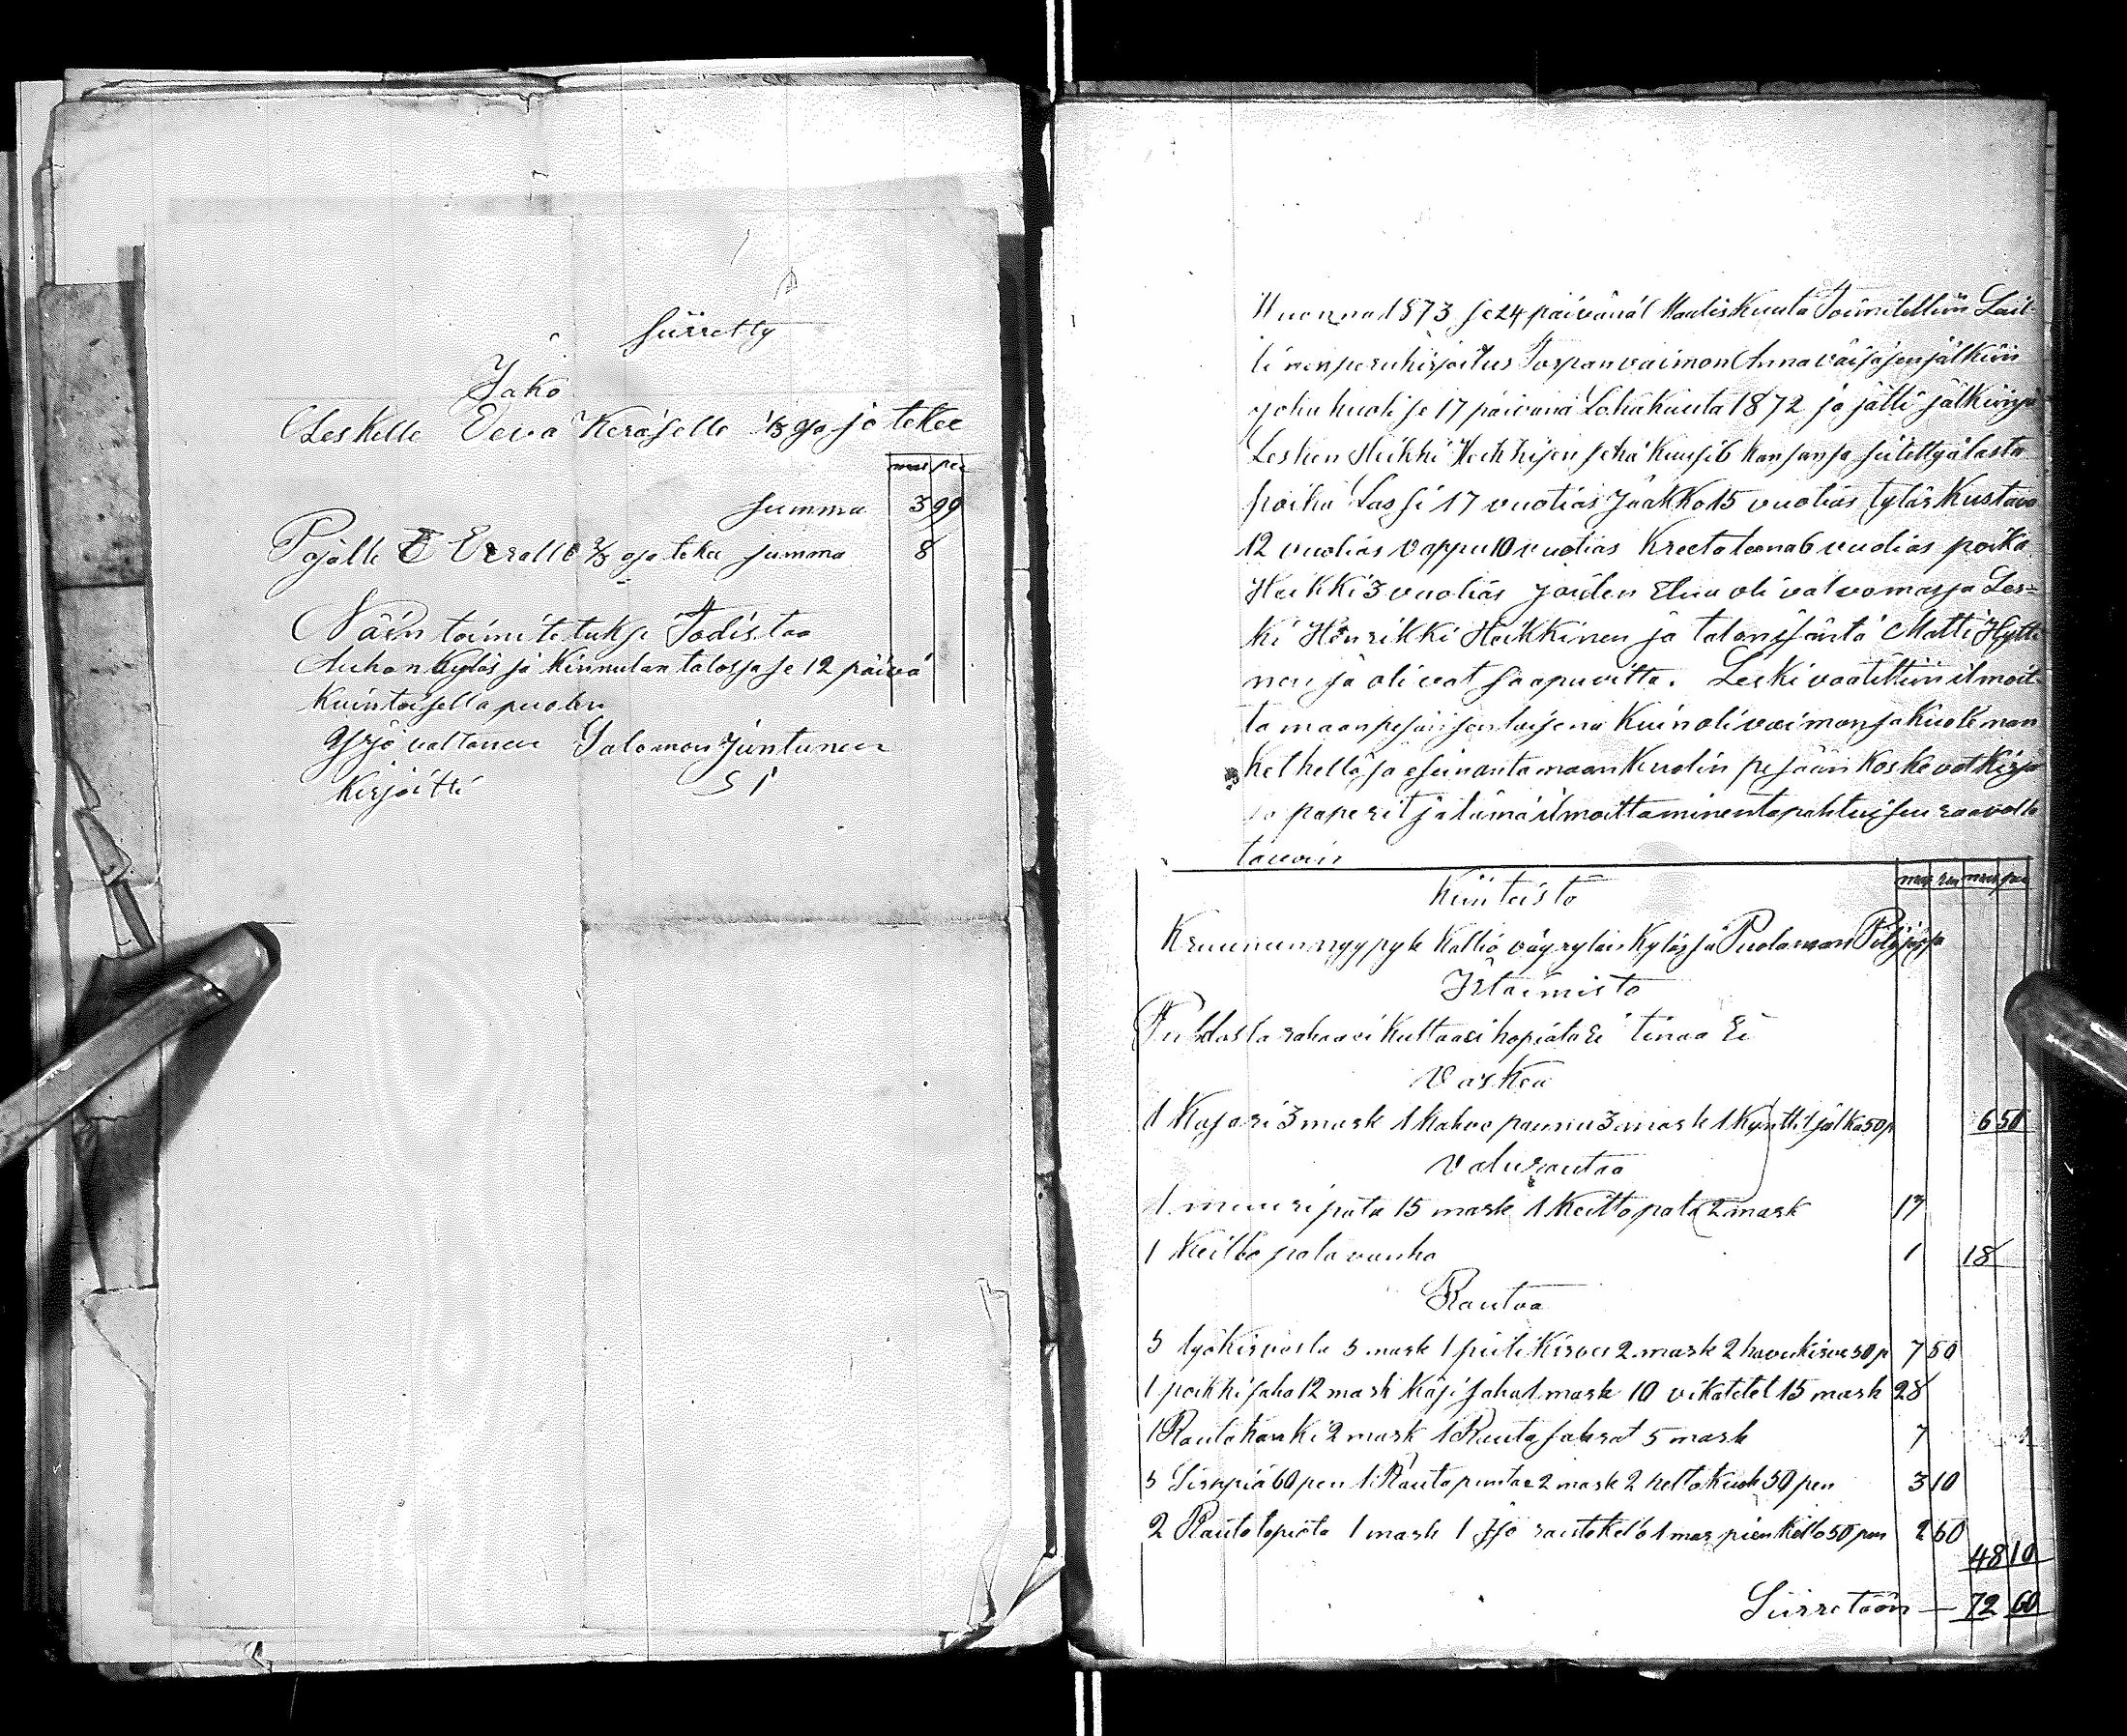 Siirretty
Jako
Leskelle Eeva Keräselle 1/3 osa ja tekee
mar pen
summa 3 99
Pojalle E Eeralle 2/3 osa tekee summa 8
Näin toimitetuksi Todistaa
Auhon kyläs jä Kinnulan talossa se 12 päivä
Kuin toisella puolen
Yrjö valtanen Salomon Juntunen
Kirjoitti S I
Wuonna 1873 se 24 päivänä Maaliskuuta Toimitettiin Lail-
linen perukirjoitus Torpan vaimon Anna väisäsen jälkiin
joka kuoli se 17 päivänä Lokakuuta 1872 ja jätti jälkiinsä
Lesken Heikki Heikkisen sekä kuusi 6 kansansa siitettyä lasta
poika Lassi 17 vuotias Jaakko 15 vuotias tytär Kustava
12 vuotias Vappu 10 vuotias Kreeta leena 6 vuotias poika
Heikki 3 vuotias Joiden Elua oli valvomassa Les=
ki Henrikki Heikkinen ja talon isäntä Matti Hytti
nen ja olivat saapuvilla. Leski vaatittiin ilmoit-
tamaan pesän sen laisena Kuin oli vaimonsa Kuoleman
hetkellä ja esiin antamaan Kuolin pesään Koskevat Kirja
ja paperit ja tämä ilmoittaminen tapahtui seuraavalla
tavoin
mar pen mar pen
Kiinteistö
Kruunun nyypyk Kallio väyrylän Kylässä Puolangan Pitäjässä
Irtaimisto
Puhdasta rahaa ei Kultaa ei hopiata Ei tinaa Ei
Vaskea
1 Kasari 3 mark 1 Kahvi pannu 3 mark 1 Kynttil jalka 50 p 6 50
Valurautaa
1 muuri pata 15 mark 1 Keitto pata 2 mark 17
1 Keitto pata vanha 1 18
Rautaa
5 työkirvestä 5 mark 1 piili Kirves 2 mark 2 havukirves 50 p 7 50
1 poikki saha 12 mark Käsi saha 1 mark 10 vikatetet 15 mark 28
1 Rautakanki 2 mark 1 Rauta sahrat 5 mark 7
5 Sirppiä 60 pen 1 Rauta puntar 2 mark 2 pelto Kuok 50 pen 3 10
2 Rauta lapiota 1 mark 1 Iso rautakello 1 mar pien Kello 50 pen 2 50
48 10
Siirretään — 72 60